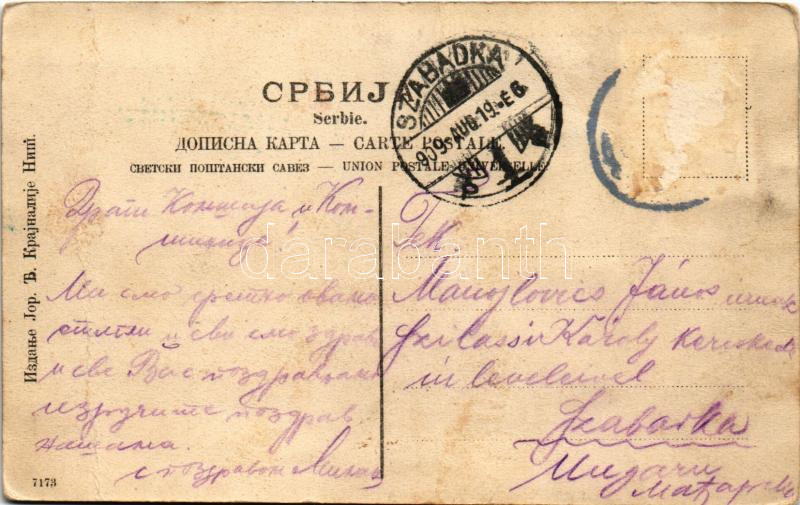 СРБИЈ
Serbie.
ДОПИСНА КАРТА — CARTE POSTALE.
СВЕТСКИ ПОШТАНСКИ САВЕЗ — UNION POSTALE UNIVERSELLE
SZABADKA
909 AUG. 19. E 6
Издање Јор. Ђ. Крајналије Ниш.
Драги Комшија и Ком-
шиница!
Ми смо сретно овамо
стигли и сви смо здрави
и све Вас поздрављамо
изручите поздрав
нашима.
с поздравом
Tek.
Manojlovics János urnak
Szilassi Károly
levelével
Szabadka
Мађарска
7173
darabanth